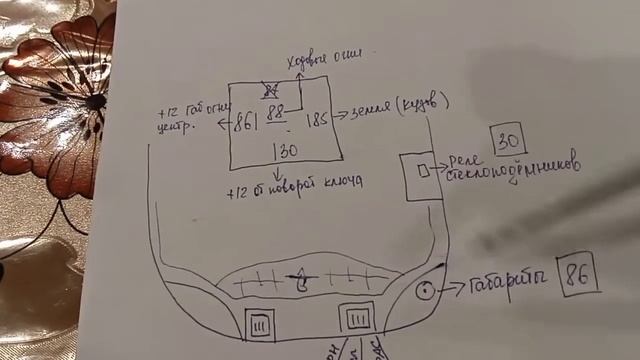 ходовые огни
87
+12 габ огни
центр.
86 88 85
земля (кузов)
30
+12 от поворот ключа
30
реле
стеклоподъёмников
габариты 86